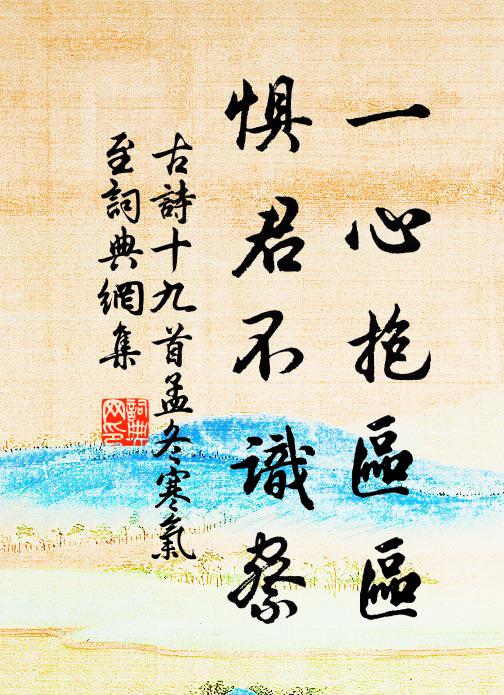 一心抱區區
懼君不識察
古詩十九首孟冬寒氣
至詞典網集
詞典
网印